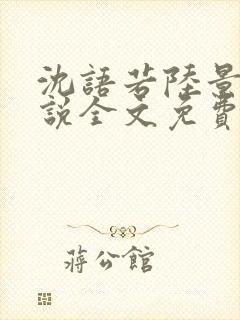 沈語若陸景
說全文免費
蔣公館